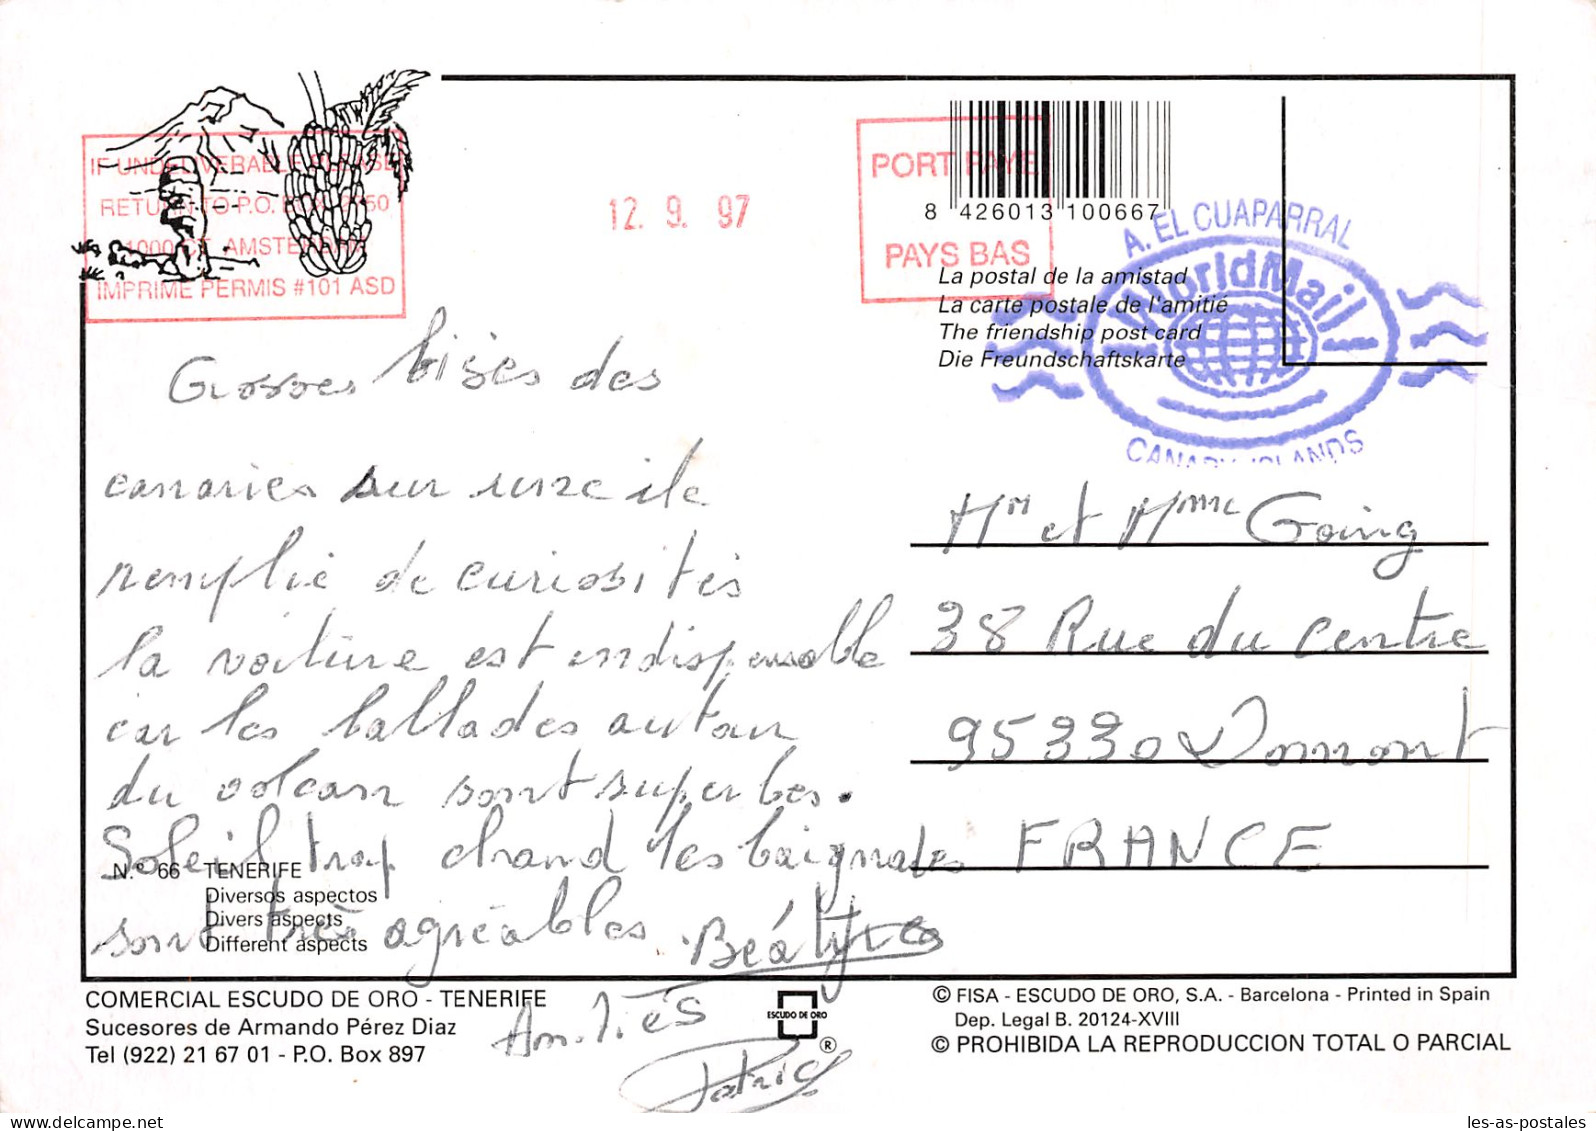 IF UNDELIVERABLE PLEASE
RETURN TO P.O. BOX 2050
1000 CT AMSTERDAM
IMPRIME PERMIS #101 ASD
12. 9. 97
PORT PAYE
PAYS BAS
8 426013 100667
A. EL CUAPARRAL
WorldMail
CANARY ISLANDS
La postal de la amistad
La carte postale de l'amitié
The friendship post card
Die Freundschaftskarte
Grosses bises des
canaries sur une ile
remplie de curiosités
la voiture est indispensable
car les ballades autour
du volcan sont superbes.
Soleil trop chaud les baignades
sont très agréables.
Béatrice
Amitiés
Patrick
Mr et Mme Going
38 Rue du centre
95330 Domont
FRANCE
N.º 66 TENERIFE
Diversos aspectos
Divers aspects
Different aspects
COMERCIAL ESCUDO DE ORO - TENERIFE
Sucesores de Armando Pérez Diaz
Tel (922) 21 67 01 - P.O. Box 897
ESCUDO DE ORO
®
© FISA - ESCUDO DE ORO, S.A. - Barcelona - Printed in Spain
Dep. Legal B. 20124-XVIII
© PROHIBIDA LA REPRODUCCION TOTAL O PARCIAL
les-as-postales